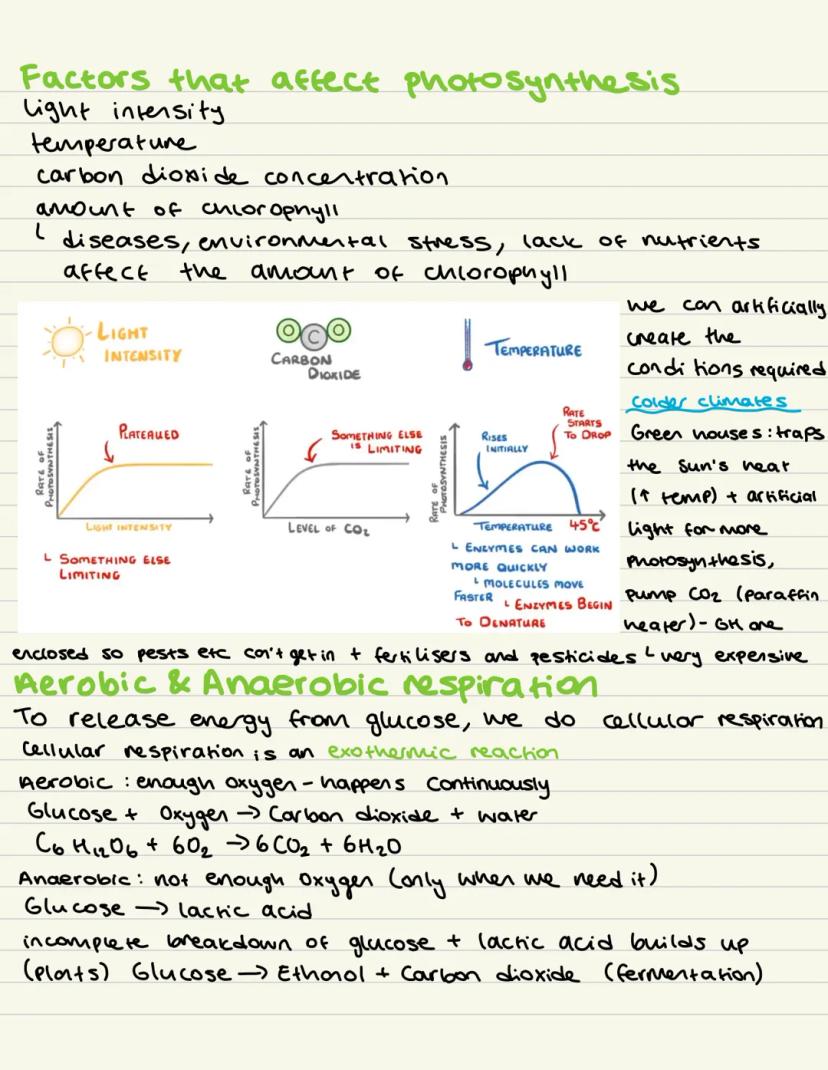 Factors that affect photosynthesis
light intensity
temperature
carbon dioxide concentration
amount of chlorophyll
└ diseases, environmental stress, lack of nutrients
affect the amount of chlorophyll
LIGHT
INTENSITY
RATE OF
PHOTOSYNTHESIS
PLATEAUED
LIGHT INTENSITY
└ SOMETHING ELSE
LIMITING
O C O
CARBON
DIOXIDE
RATE OF
PHOTOSYNTHESIS
SOMETHING ELSE
IS LIMITING
LEVEL OF CO₂
TEMPERATURE
RATE OF
PHOTOSYNTHESIS
RISES
INITIALLY
RATE
STARTS
TO DROP
TEMPERATURE 45°C
└ ENZYMES CAN WORK
MORE QUICKLY
└ MOLECULES MOVE
FASTER └ ENZYMES BEGIN
TO DENATURE
we can artificially
create the
conditions required
colder climates
Green houses: traps
the sun's heat
(↑ temp) + artificial
light for more
photosynthesis,
pump CO₂ (paraffin
heater) - GH are
enclosed so pests etc can't get in + fertilisers and pesticides └ very expensive
Aerobic & Anaerobic respiration
To release energy from glucose, we do cellular respiration
cellular respiration is an exothermic reaction
Aerobic : enough oxygen - happens continuously
Glucose + Oxygen → Carbon dioxide + water
C₆H₁₂O₆ + 6O₂ → 6CO₂ + 6H₂O
Anaerobic: not enough oxygen (only when we need it)
Glucose → lactic acid
incomplete breakdown of glucose + lactic acid builds up
(plants) Glucose → Ethanol + Carbon dioxide (fermentation)